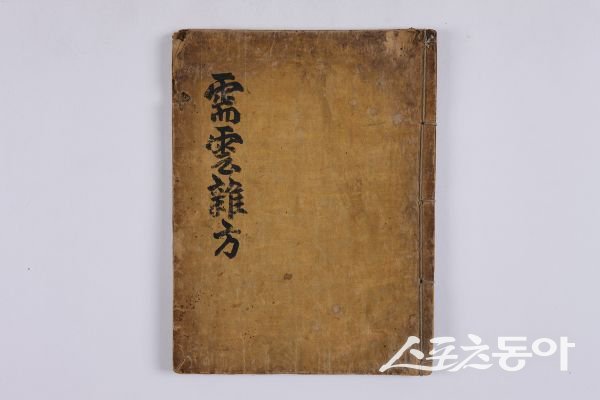 需雲雜方
스포츠동아